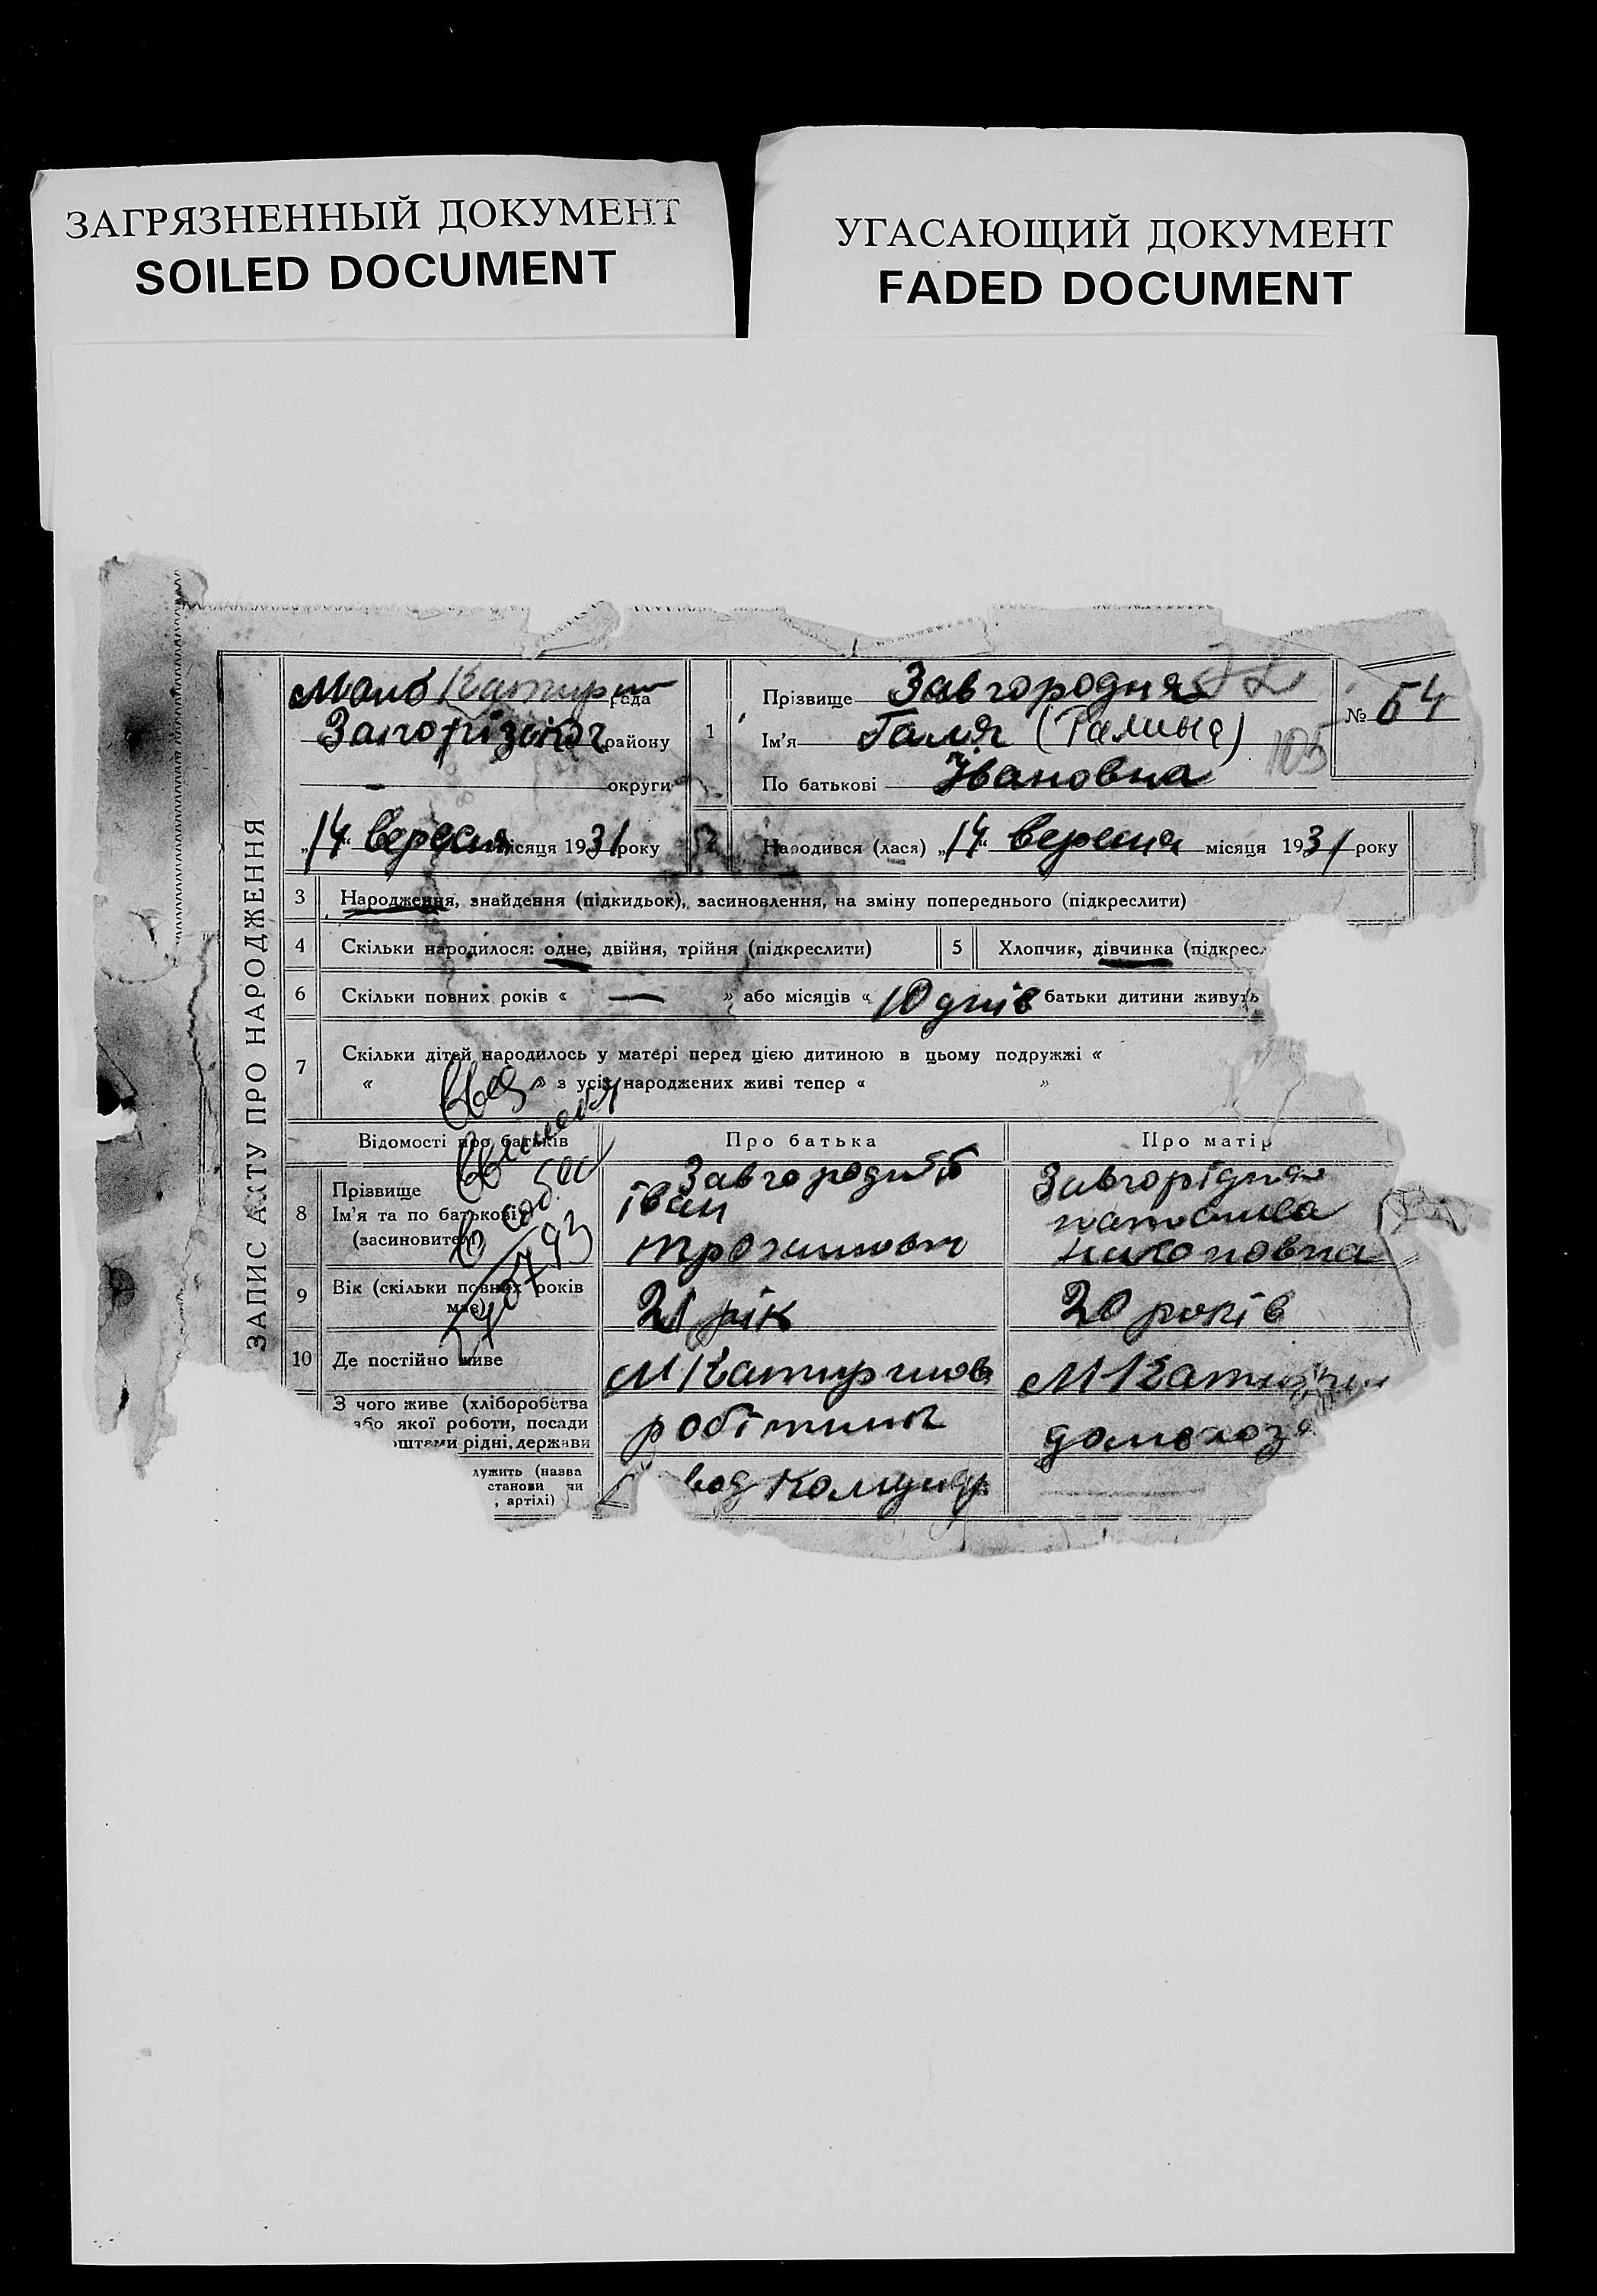 ЗАГРЯЗНЕННЫЙ ДОКУМЕНТ
SOILED DOCUMENT
УГАСАЮЩИЙ ДОКУМЕНТ
FADED DOCUMENT
ЗАПИС АКТУ ПРО НАРОДЖЕННЯ
рада
району
— округи
„14“ вересня місяця 1931 року
1
Прізвище Завгородня
Ім'я Галя (Галина)
По батькові Івановна
№ 54
105
2
Народився (лася) „14“ вересня місяця 1931 року
3 Народження, знайдення (підкидьок), засиновлення, на зміну попереднього (підкреслити)
4 Скільки народилося: одне, двійня, трійня (підкреслити)
5 Хлопчик, дівчинка (підкресл
6 Скільки повних років « — » або місяців « 10 днів батьки дитини живуть
7 Скільки дітей народилось у матері перед цією дитиною в цьому подружжі «
« » з усіх народжених живі тепер « »
Відомості про батьків
Про батька
Про матір
8 Прізвище
Ім'я та по батькові
(засновител
Завгородній
Іван
Завгорідня
никоновна
9 Вік (скільки повних років
має)
21 рік
20 років
10 Де постійно живе
З чого живе (хліборобства
або якої роботи, посади
оштами рідні, держави
робітник
домохоз
лужить (назва
станови чи
, артілі)
вод Комунар